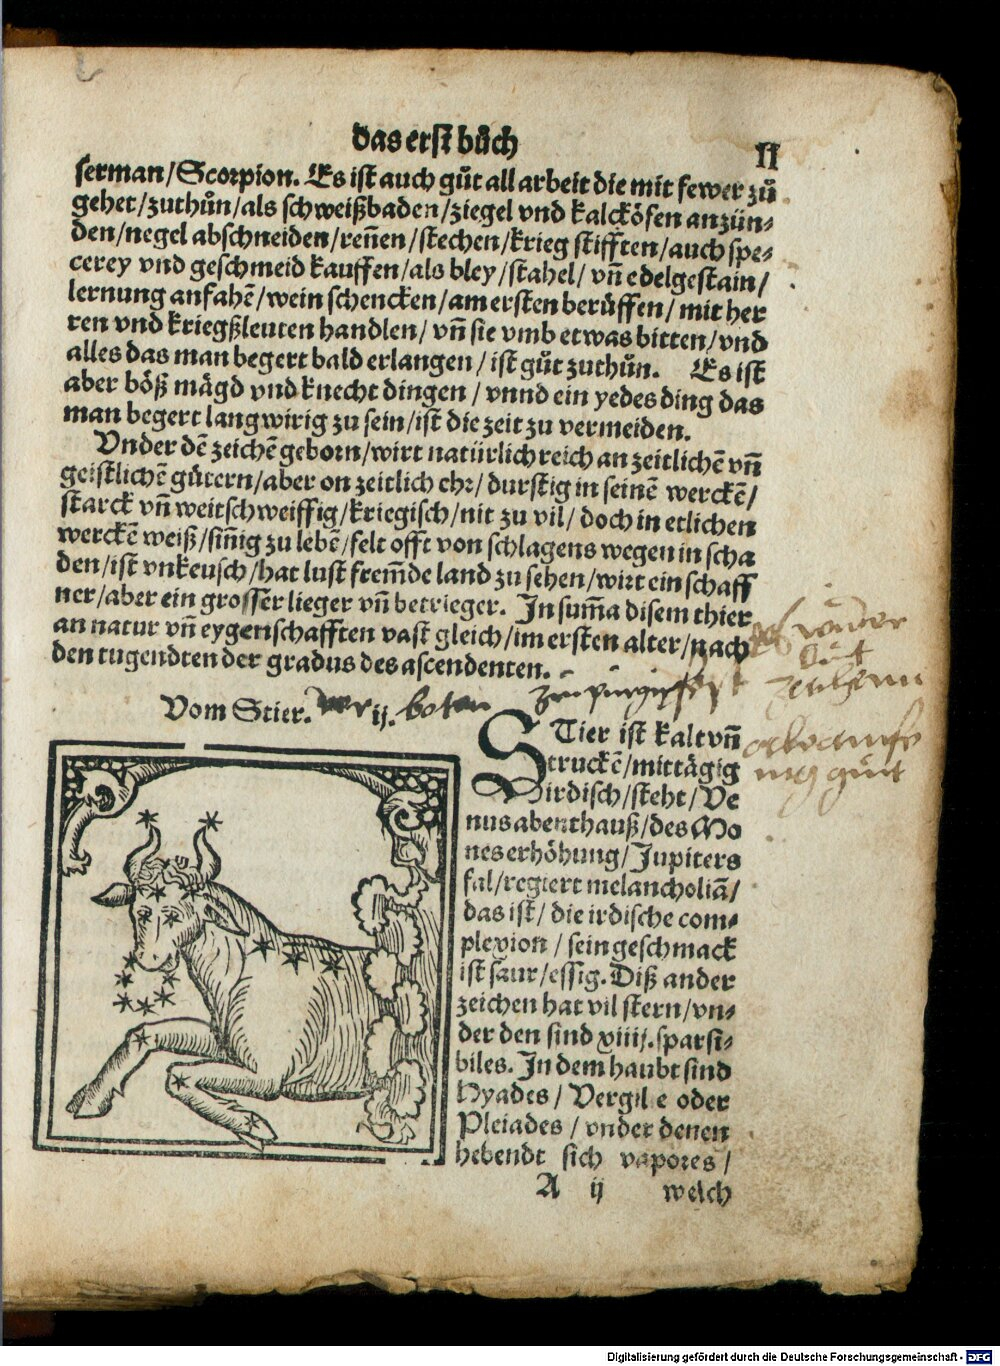 das erst bůch
II
serman/Scorpion. Es ist auch gůt all arbeit die mit fewer zů
gehet/zuthůn/als schweißbaden/ziegel vnd kalcköfen anzün⸗
den/negel abschneiden/reñen/stechen/krieg stifften/auch spe⸗
cerey vnd geschmeid kauffen/als bley/stahel/vñ edelgestain/
lernung anfahē/wein schencken/am ersten berůffen/mit her
ren vnd kriegßleuten handlen/vñ sie vmb etwas bitten/vnd
alles das man begert bald erlangen/ist gůt zuthůn. Es ist
aber böß mägd vnd knecht dingen/vnnd ein yedes ding das
man begert langwirig zu sein/ist die zeit zu vermeiden.
Vnder dē zeichē geborn/wirt natürlich reich an zeitlichē vñ
geistlichē gütern/aber on zeitlich ehr/durstig in seinē werckē/
starck vñ weitschweiffig/kriegisch/nit zu vil/doch in etlichen
werckē weiß/siñig zu lebē/felt offt von schlagens wegen in scha
den/ist vnkeusch/hat lust frem̃de land zu sehen/wirt ein schaff
ner/aber ein grosser lieger vñ betrieger. In sum̃a disem thier
an natur vñ eygenschafften vast gleich/im ersten alter/nach
den tugendten der gradus des ascendenten.
Vom Stier. ij. boten
STier ist kalt vñ
truckē/mittägig
irdisch/steht/Ve
nus abenthauß/des Mo
nes erhöhung/Jupiters
fal/regiert melancholiā/
das ist/die irdische com⸗
plexion/sein geschmack
ist saur/essig. Diß ander
zeichen hat vil stern/vn⸗
der den sind xiiij. sparsi⸗
biles. In dem haubt sind
Hyades/Vergil e oder
Pleiades/vnder denen
hebendt sich vapores/
A ij welch
Digitalisierung gefördert durch die Deutsche Forschungsgemeinschaft - DFG